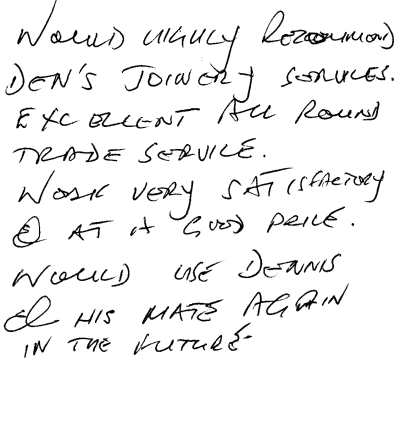 WOULD HIGHLY RECOMMEND
DEN'S JOINERY SERVICES.
EXCELLENT ALL ROUND
TRADE SERVICE.
WORK VERY SATISFACTORY
& AT A GOOD PRICE.
WOULD USE DENNIS
& HIS MATE AGAIN
IN THE FUTURE